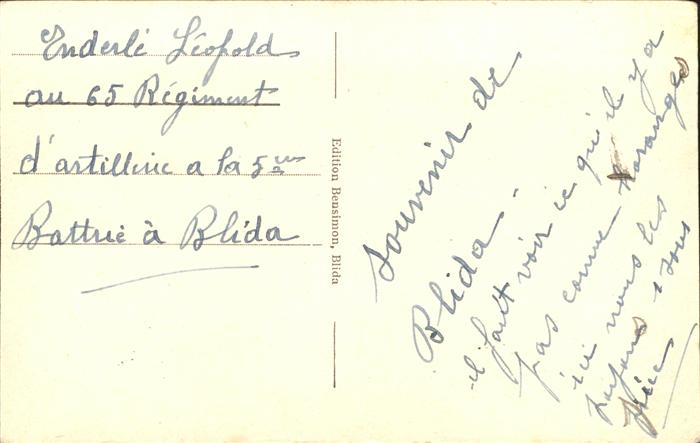 Enderlé Léopold
au 65 Régiment
d'artillerie a la 5me
Battrie à Blida
Edition Bensimon, Blida
souvenir de
Blida -
il faut voir ce qu'il y a
pas comme horanges
ici nous les
sous